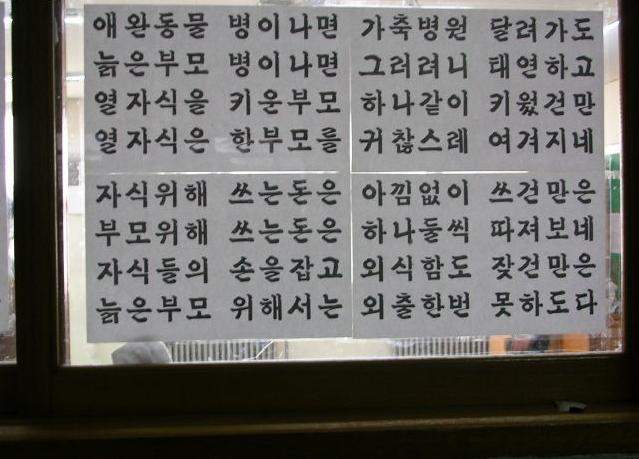 애완동물 병이나면 가축병원 달려가도
늙은부모 병이나면 그러려니 태연하고
열자식을 키운부모 하나같이 키웠건만
열자식은 한부모를 귀찮스레 여겨지네
자식위해 쓰는돈은 아낌없이 쓰건만은
부모위해 쓰는돈은 하나둘씩 따져보네
자식들의 손을잡고 외식함도 잦건만은
늙은부모 위해서는 외출한번 못하도다